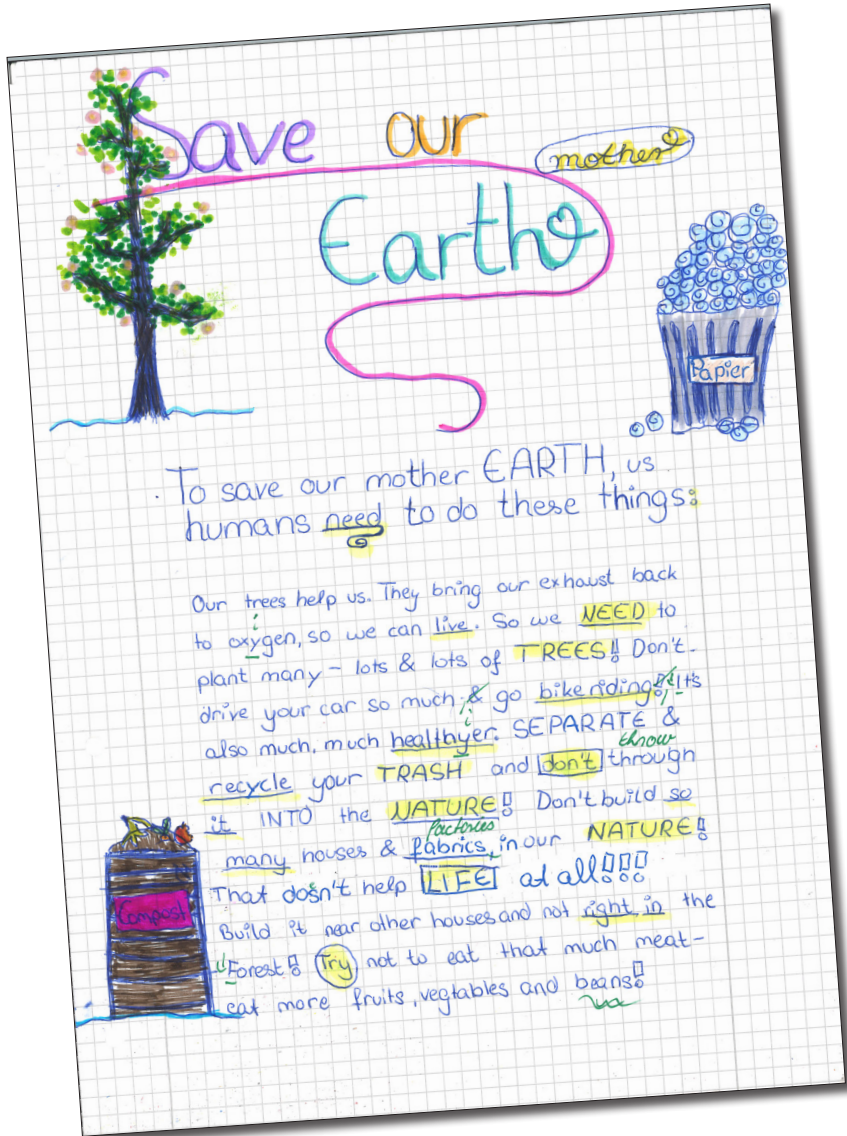 Save our
mother
Earth
Papier
To save our mother EARTH, us
humans need to do these things:
Our trees help us. They bring our exhaust back
i
to oxygen, so we can live. So we NEED to
plant many - lots & lots of TREES!! Don't
drive your car so much, & go bike riding! It's
i
also much, much healthyer. SEPARATE &
throw
recycle your TRASH and don't through
it INTO the NATURE! Don't build so
factories
many houses & fabrics, in our NATURE!
That dosn't help LIFE at all!!!
Compost
Build it near other houses and not right in the
Forest! Try not to eat that much meat-
eat more fruits, vegtables and beans!